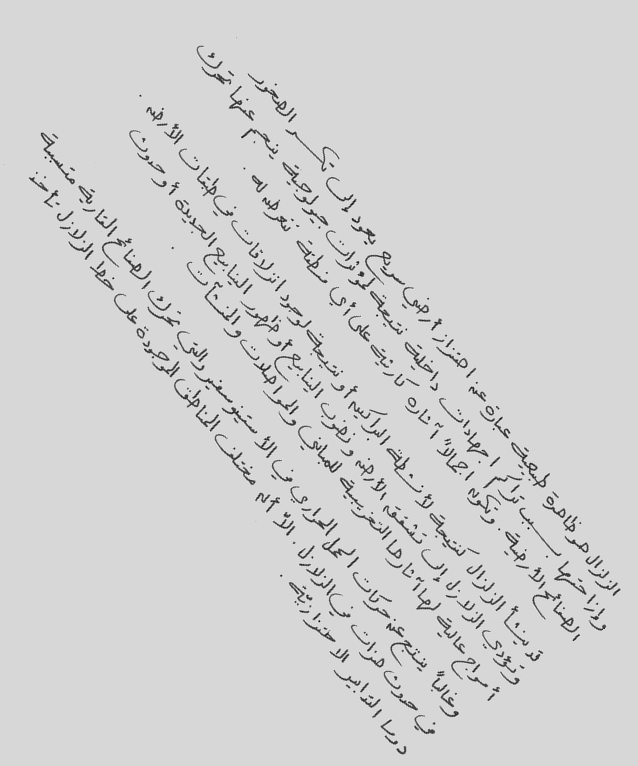 الزلزال هو ظاهرة طبيعية عبارة عن اهتزاز أرضي سريع يعود إلى تكسر الصخور
وإزاحتها بسبب تراكم اجهادات داخلية نتيجة لمؤثرات جيولوجية ينجم عنها تحرك
الصفائح الأرضية. وتكون اجمالاً آثاره كارثية على أي منطقة تتعرض له.
قد ينشأ الزلزال كنتيجة لأنشطة البراكين أو نتيجة لوجود انزلاقات في طبقات الأرض.
وتؤدي الزلازل إلى تشقق الأرض ونضوب الينابيع أو ظهور الينابيع الجديدة أو حدوث
أمواج عالية لها آثارها التخريبية للمباني والمواصلات والمنشآت.
وغالباً ينتج عن حركات الحمل الحراري في الأستينوسفير والتي تحرك الصفائح القارية متسببة
في حدوث هزات هي الزلازل. الاّ أن مختلف المناطق الموجودة على خط الزلازل تأخذ
دوما التدابير الاحترازيّة.